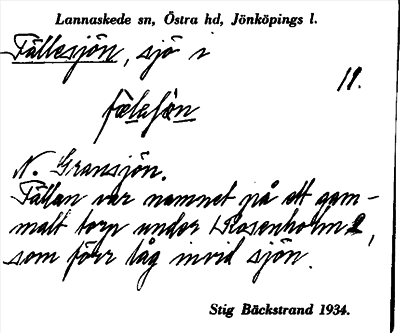 Lannaskede sn, Östra hd, Jönköpings l.
Fällesjön, sjö i
11.
N. Gransjön.
Fällan var namnet på ett gam-
malt torp under Rosenholm 2,
som förr låg invid sjön.
Stig Bäckstrand 1934.